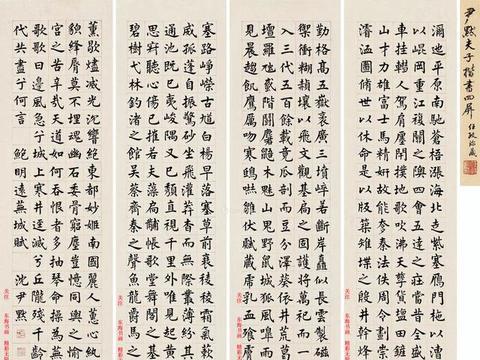 尹默夫子楷書四屏 任政珍藏
瀰迆平原南馳蒼梧漲海北走紫塞鴈門柂以漕
以崐岡重江複關之隩四會五達之莊當昔全盛
車挂轊人駕肩廛閈撲地歌吹沸天孳貨鹽田鏟
山才力雄富士馬精妍故能奓秦法佚周令劃崇
濬洫圖脩世以休命是以版築雉堞之殷井幹烽
勤格高五嶽袤廣三墳崪若斷岸矗似長雲製磁
禦衝糊赬壤以飛文觀基扃之固護將萬祀而一
入三代五百餘載竟瓜剖而豆分澤葵依井荒葛罥
壇羅虺蜮階鬬麏鼯木魅山鬼野鼠城狐風嗥
見晨趨飢鷹厲吻寒鴟嚇雛伏虣藏虎乳血飡膚
塞路崢嶸古馗白楊早落塞草前衰稜稜霜氣蔌
威孤蓬自振驚砂坐飛灌莽杳而無際叢薄紛其
通池既已夷峻隅又已頹直視千里外唯見起黃埃
思寂聽心傷已摧若夫藻扃黼帳歌堂舞閣之基
碧樹弋林釣渚之館吳蔡齊秦之聲魚龍爵馬之
薰歇燼滅光沉響絕東都妙姬南國麗人蕙心紈
貌絳脣莫不埋魂幽石委骨窮塵豈憶同輿之愉
宮之苦辛哉天道如何吞恨者多抽琴命操為蕪
歌歌曰邊風急兮城上寒井逕滅兮丘隴殘千齡
代共盡兮何言 鮑明遠蕪城賦 沈尹默
关注 东海书画
关注 东海书画
关注 东海书画
关注 东海书画